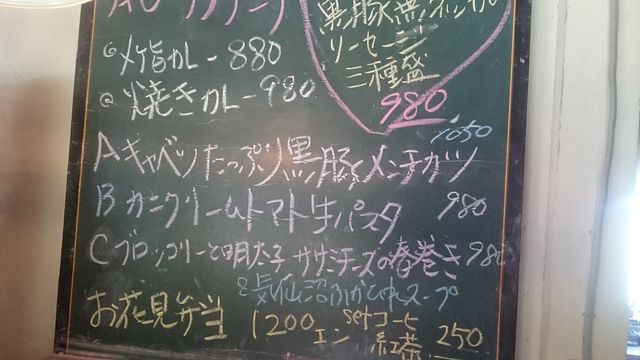 黒豚無添加
ソーセージ
三種盛
980
カレー880
焼きカレー980
1050
Aキャベツたっぷり黒豚メンチカツ
Bカニクリームトマト生パスタ 980
Cブロッコリーと明太子ササミチーズの春巻き980
気仙沼ふかひれスープ
お花見弁当 1200エン setコーヒー 紅茶 250